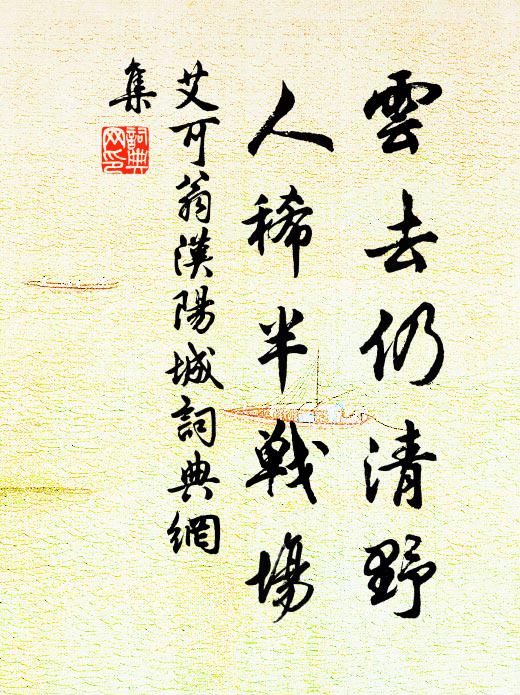 雲去仍清野
人稀半戰場
艾可翁漢陽城詞典網
集
詞典
网印